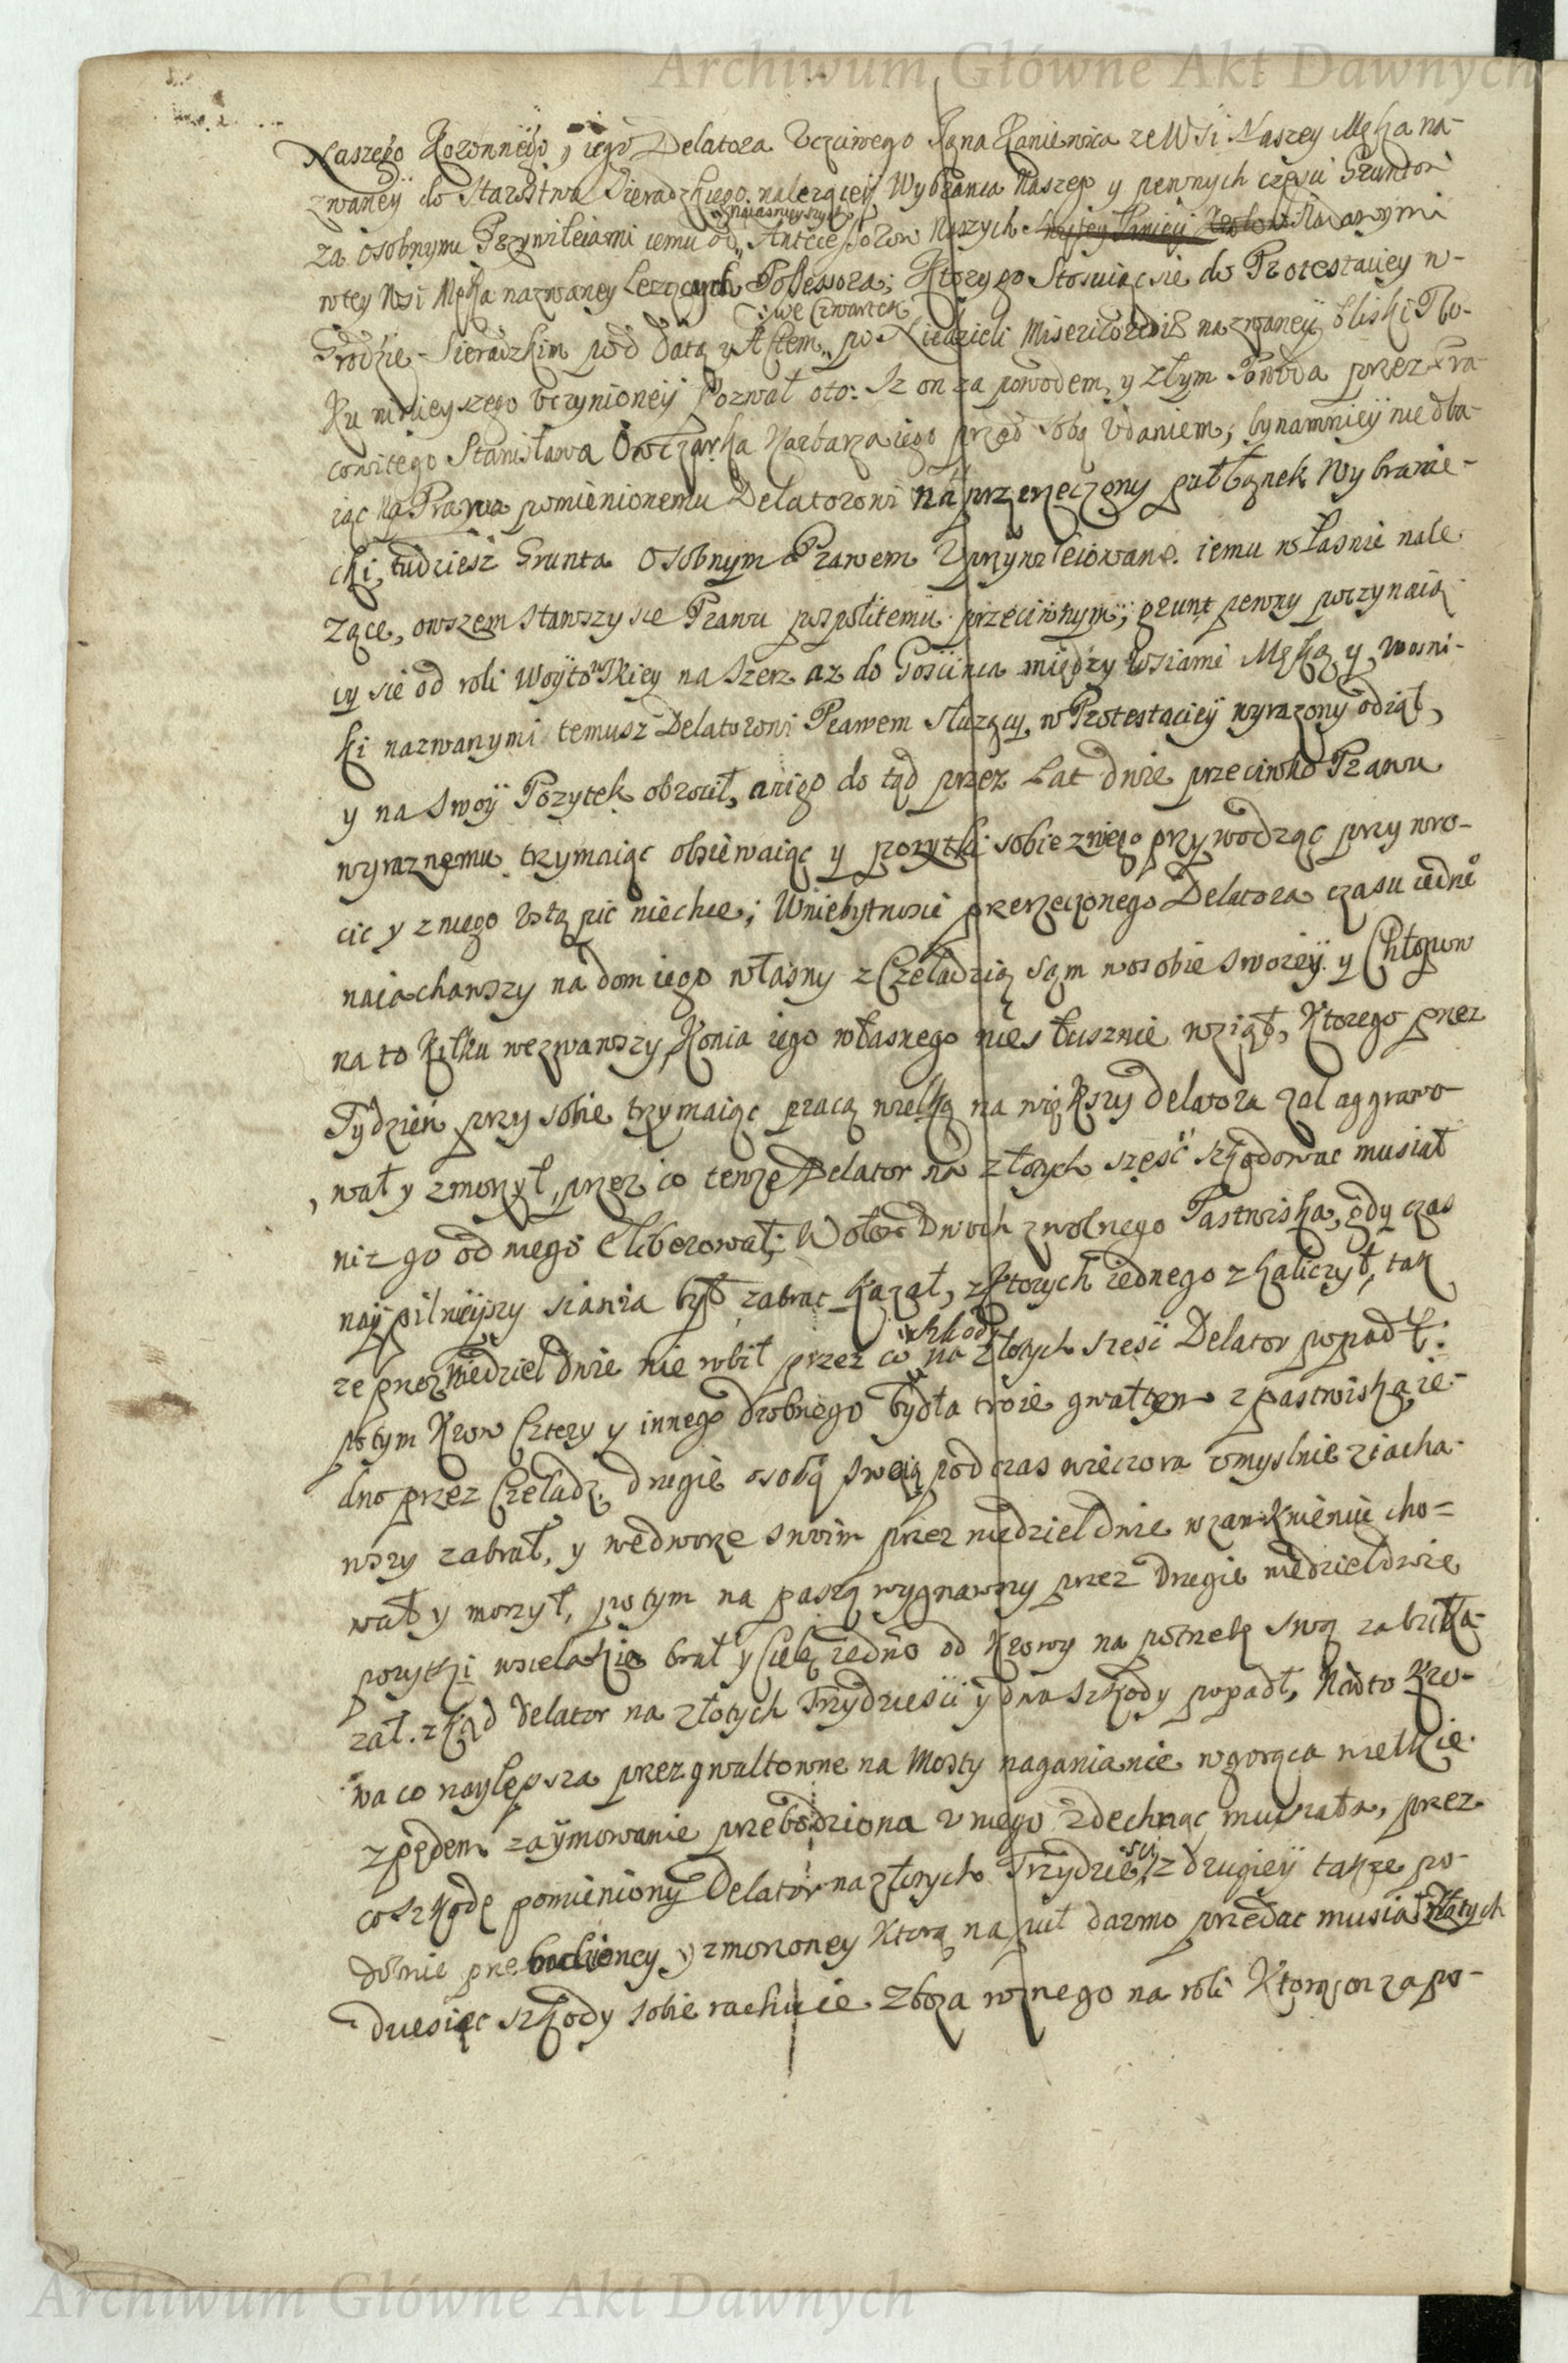 Archiwum Główne Akt Dawnych
Naszego Koronnego, iego Delatora Uczciwego Jana Kaniewica ze Wsi Naszey Męka na-
zwaneÿ do Starostwa Sieradzkiego należącej Wybranca Naszego y pewnych części Gruntow
za osobnymi Przywileiami iemu od Naiasnieyszych Antecessorow Naszych nadanymi
wtey Wsi Męka nazwaney Lezących Possessora; Ktory go Stosuiąc sie do Protestaciey w
Grodzie Sieradzkim pod Datą y Aktem we Czwartek po Niedzieli Misericordiae nazwaneÿ bliski Ro-
ku ninieyszego Uczynioneÿ Pozwał oto: Iz on za powodem y złym Powoda przez Pra-
cowitego Stanisława Owczarka Karbarza iego przed sobą Udaniem, bynamnieÿ nie dba-
iąc na Prawa pomienionemu Delatorowi na przerzeczony pułłanek Wybranie-
cki, tudziesz Grunta osobnym Prawem Uprzywileiowane iemu własnie nale
zące, owszem stawszy sie Prawu pospolitemu przeciwnym, grunt pewny poczynaią
cy sie od roli Woytowskiey na szerz az do Goscinca między Wsiami Męką y Wozni-
ki nazwanymi temusz Delatorowi Prawem sluzący, w Protestacieÿ wyrazony odiął,
y na swoÿ Pozytek obrocił, a niego do tąd przez Lat dwie przeciwko Prawu
wyraznemu trzymaiąc obsiewaiąc y pozytki sobie zniego przywodząc przywro-
cic y z niego ustąpic niechce; W niebytnosci przerzeczonego Delatora czasu iedne
naiachawszy na dom iego własny z Czeladzią sam w osobie swoieÿ y Chłopow
na to kilku wezwawszy, Konia iego własnego niesłusznie wziął, Ktorego przez
Tydzien przy sobie trzymaiąc pracą wielką na większy Delatora zal aggrawo
wał y zmorzył, przez co tenze Delator na złotych szesć szkodowac musiał
niz go od niego eliberował; Wołow Dwoch zwolnego Pastwiska, gdy czas
naÿpilnieÿszy siania był zabrac kazał, z Ktorych iednego zkaliczył, tak
ze przez niedziel dwie nie robił przez co w szkodę na złotych szesć Delator popadł:
potym Krow Cztery y innego drobnego bydła troie gwałtem z pastwiska ie-
dno przez Czeladz, drugie osobą swoią podczas wieczora umyslnie ziacha-
wszy zabrał, y wedworze swoim przez niedziel dwie w zamknieniu cho=
wał y morzył, potym na paszą wygnawszy przez drugie niedziel dwie
pozytki wszelakie brał y Cielę iedno od Krowy na potrzebę swą zabić ka-
zał. zkąd Delator na złotych Trzydziesci y dwa szkody popadł, Nadto Kro-
wa co naylepsza przez gwałtowne na Mosty naganianie w gorąca wielkie
z pędem zaÿmowanie przebodziona u niego zdechnąc musiała, przez
co szkodę pomieniony Delator na złotych Trzydziesci, z drugieÿ takze po-
dobnie przebodzioney y zmorzoney ktorą na puł darmo przedac musiał złotych
dziesięc szkody sobie rachuie Zboza roznego na roli Ktorą on zapo-
Archiwum Główne Akt Dawnych